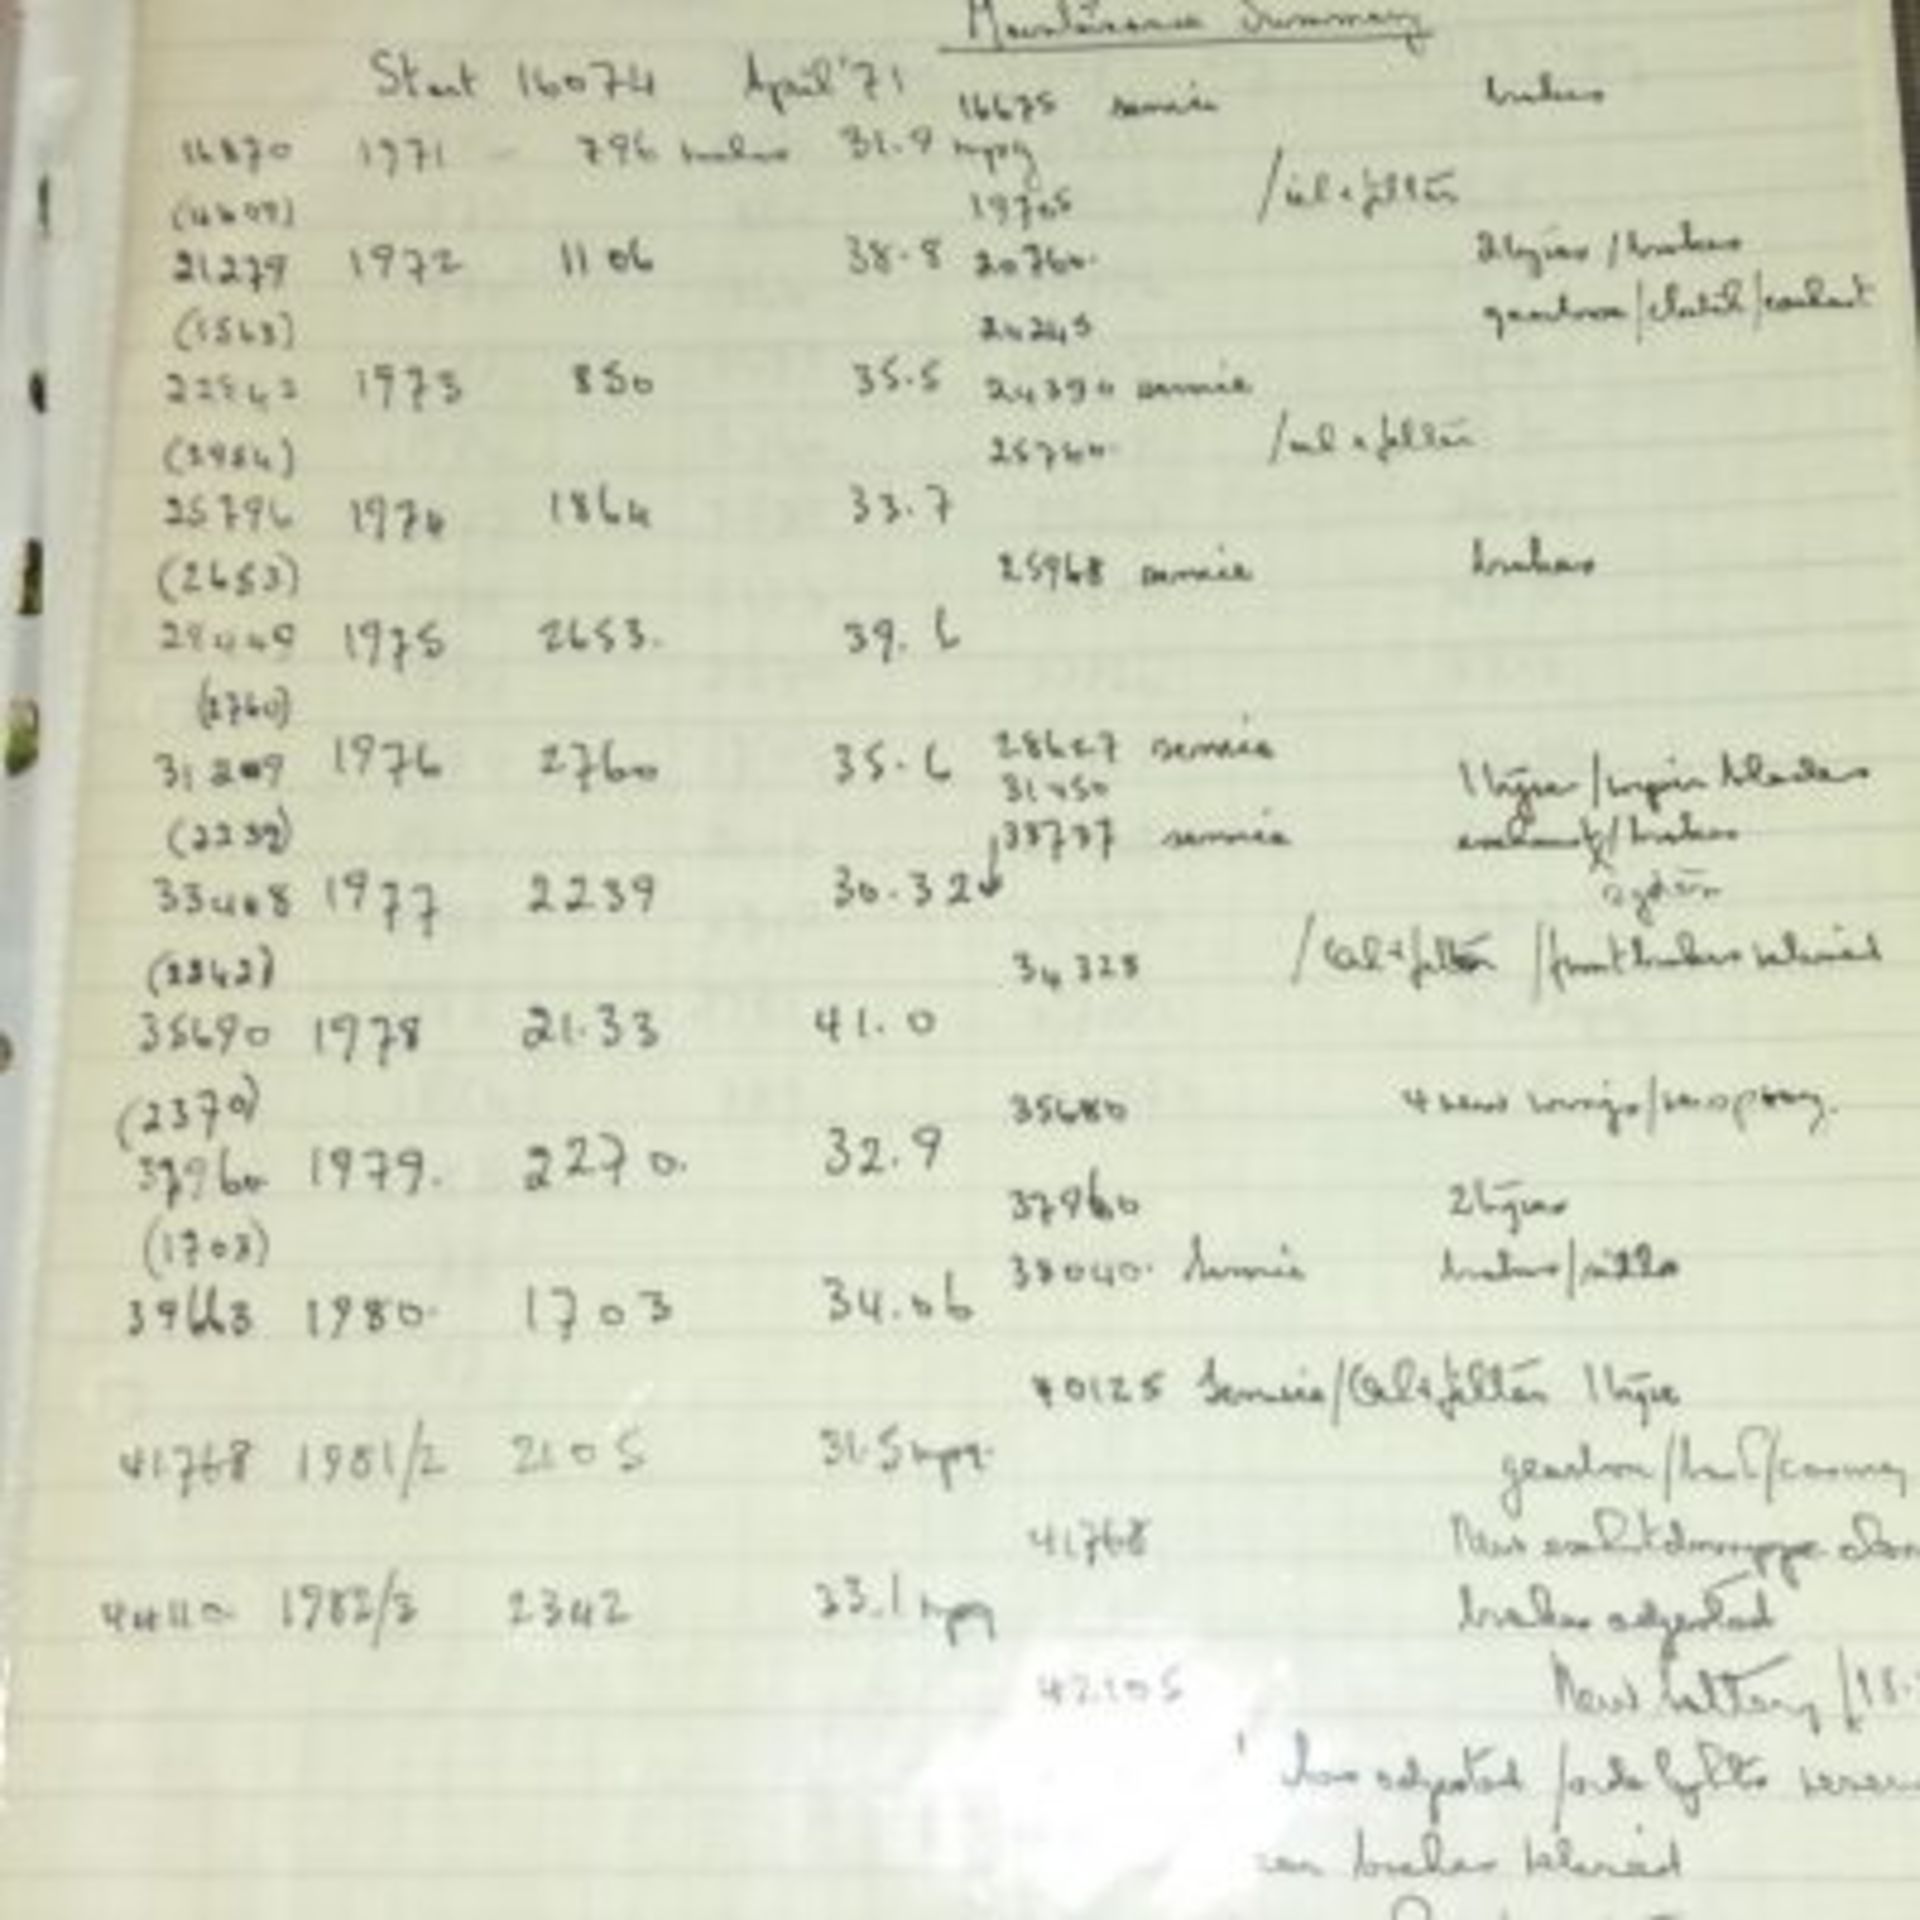 Maintainance Summary
Start 16074 April '71
16675 service brakes
16870 1971 - 796 miles 31.9 mpg
19705 / oil + filter
(4409)
21279 1972 1106 38.8 20760. 2 tyres / brakes
(1563) 24245 gearbox / clutch / exhaust
22842 1973 850 35.5 24390 service
(2954) 25760. / oil + filter
25796 1974 1864 33.7
(2653) 25968 service brakes
28449 1975 2653. 39.6
(2760)
31209 1976 2760 35.6 28627 service
31450 1 tyre / wiper blades
(2239) 33737 service exhaust / brakes
system
33448 1977 2239 30.32
(2242) 34328 / Oil + filter / front brakes relined
35690 1978 21.33 41.0
(2370) 35680 4 new wings / respray.
37960 1979. 2270. 32.9
37960 2 tyres
(1703) 38040. Service brakes / sills
39663 1980. 1703 34.06
40125 Service / Oil + filter 1 tyre
41768 1981/2 2105 31.5 mpg. gearbox /
41768 New
44110 1982/3 2342 33.1 mpg brakes adjusted
42105 New battery /
adjusted /
brakes relined